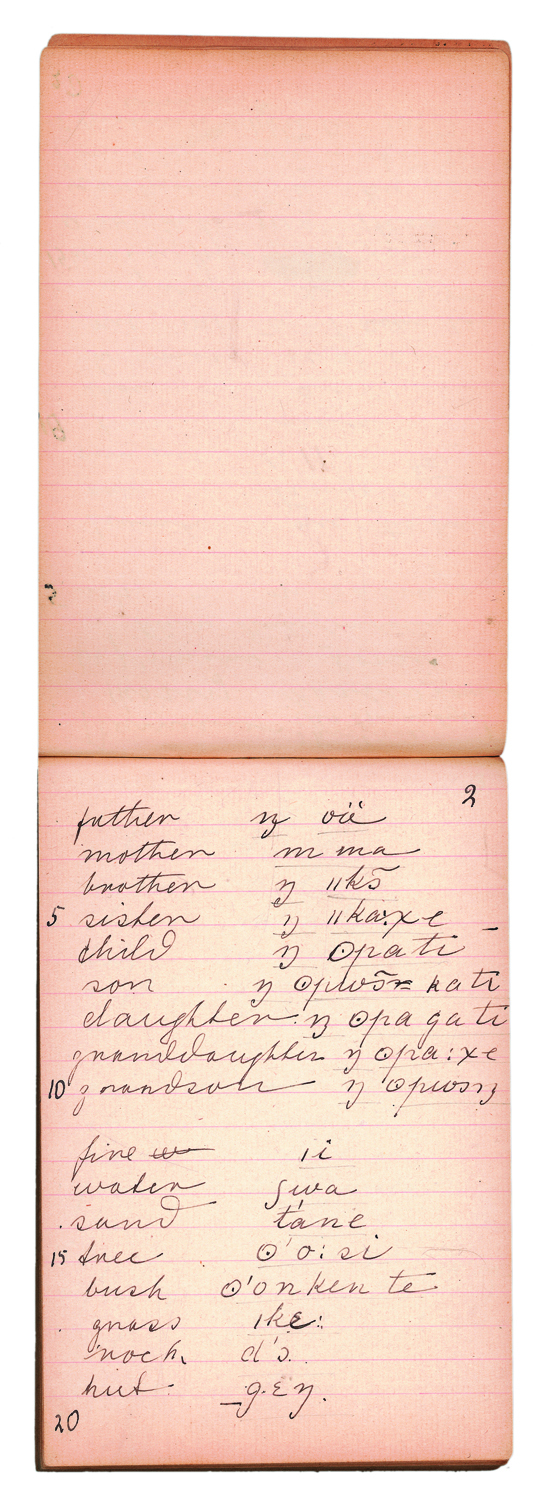 2
father ŋ oä
mother m ma
brother ŋ ǁkɔ̄
5 sister ŋ ǁka:xe
child ŋ ʘpa ti
son ŋ ʘpwɔ̄ŋ ka ti
daughter ŋ ʘpa ga ti
granddaughter ŋ ʘpa:xe
10 grandson ŋ ʘpwɔŋ
fire ǀi
water ʃwa
sand táne
15 tree ʘ'o:si
bush ʘ'onken te
grass ǀkɛ:
rock d'ɔ.
hut g.ɛŋ.
20